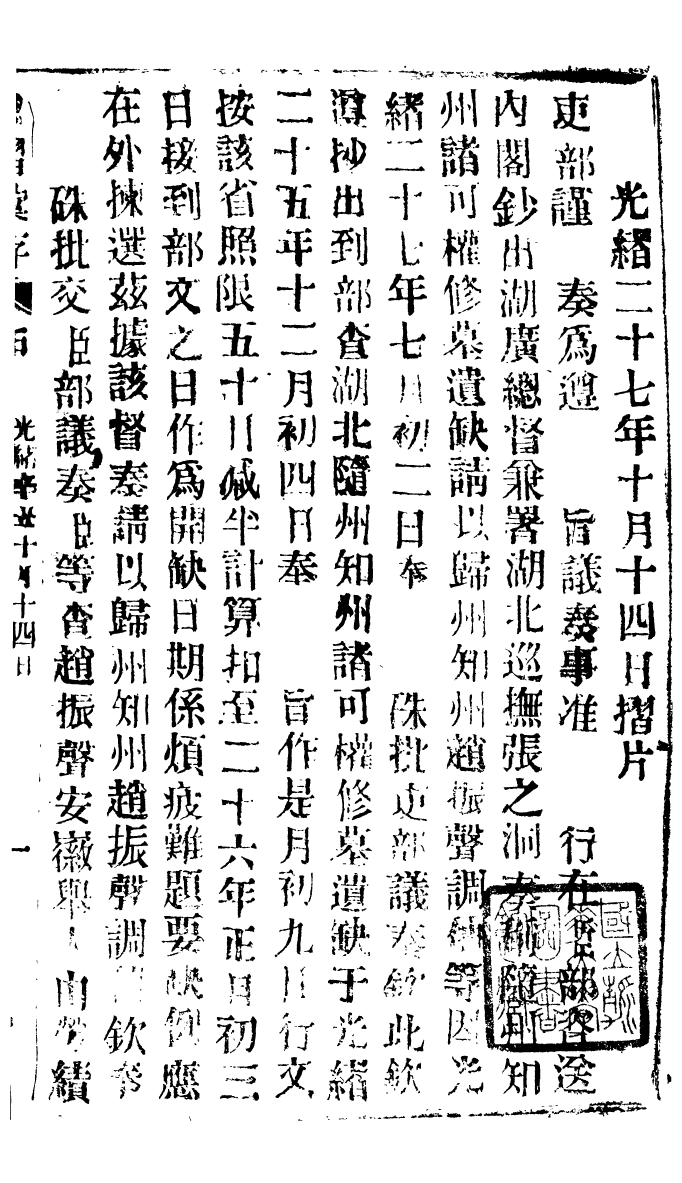 光緒二十七年十月十四日摺片
吏部謹 奏爲遵 旨議奏事准 行在吏部咨送
內閣鈔出湖廣總督兼署湖北巡撫張之洞奏稱隨州知
州諸可權修墓遺缺請以歸州知州趙振聲調補等因光
緒二十七年七月初二日奉 硃批吏部議奏欽此欽
遵抄出到部查湖北隨州知州諸可權修墓遺缺于光緒
二十五年十二月初四日奉 旨作是月初九日行文
按該省照限五十日減半計算扣至二十六年正月初三
日接到部文之日作爲開缺日期係煩疲難題要缺例應
在外揀選茲據該督奏請以歸州知州趙振聲調補欽奉
硃批交臣部議奏臣等查趙振聲安徽舉人由勞績
光緒 十月十四日
一
國立 圖書